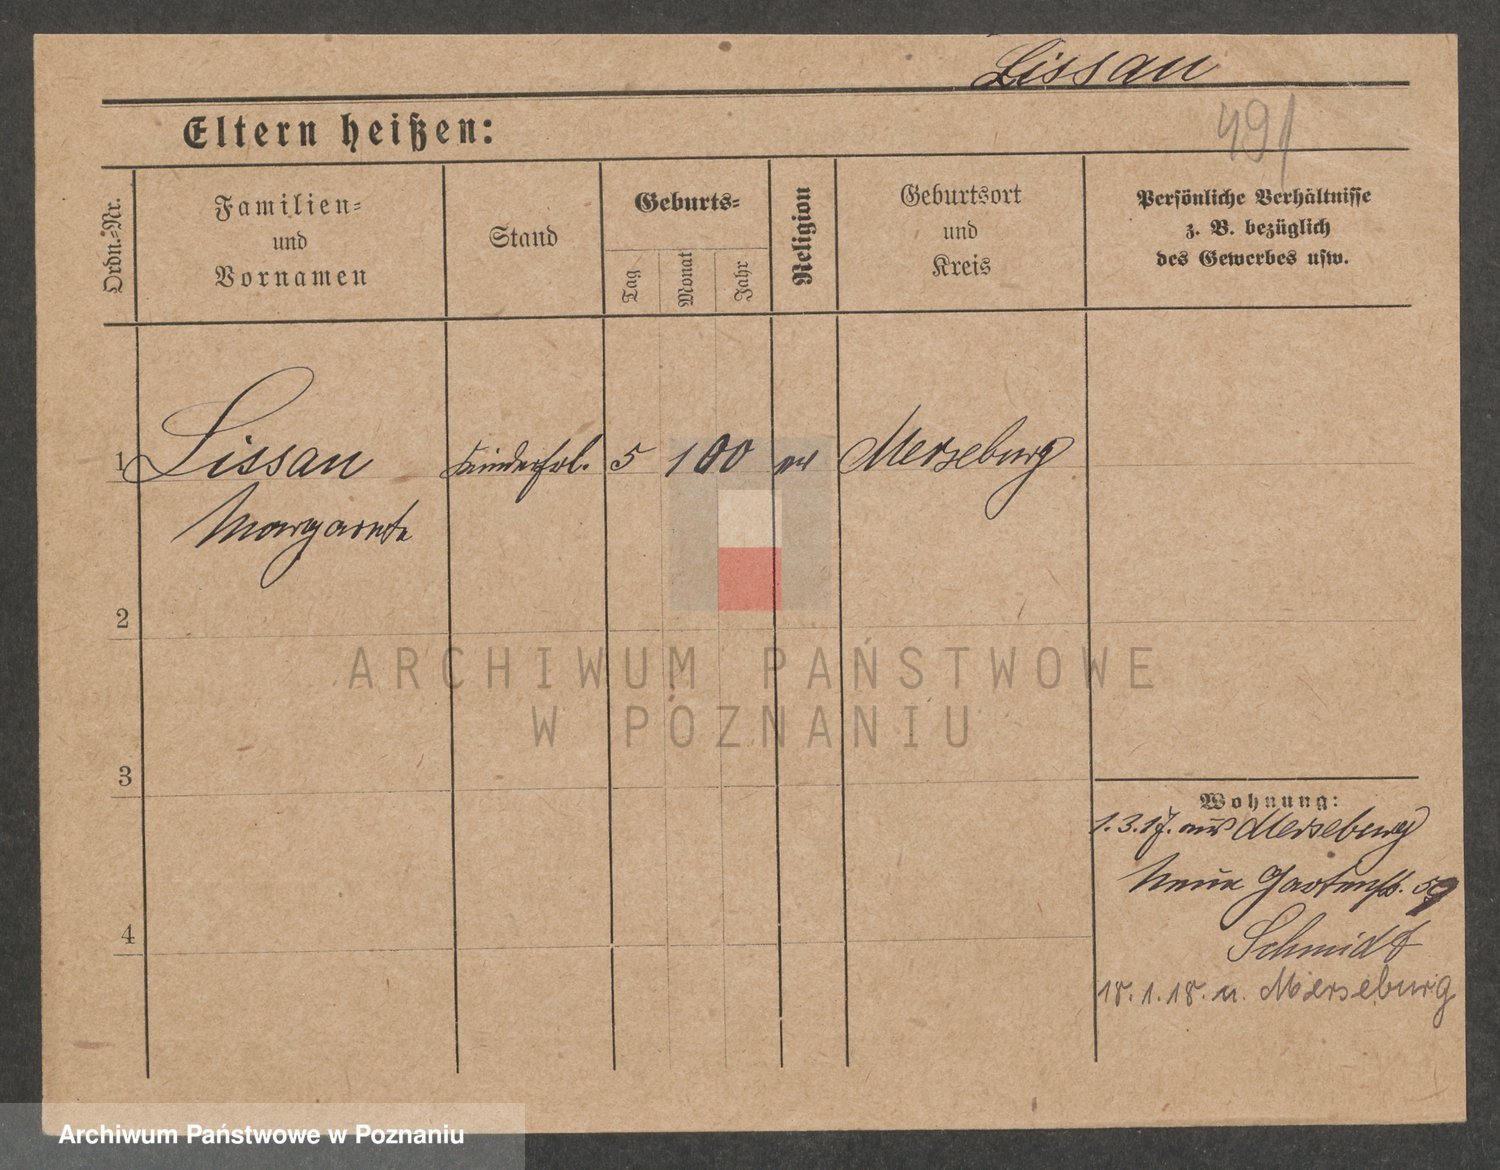 Lissau
491
Eltern heißen:
Ordn.-Nr.
Familien-
und
Vornamen
Stand
Geburts-
Tag
Monat
Jahr
Religion
Geburtsort
und
Kreis
Persönliche Verhältnisse
z. B. bezüglich
des Gewerbes usw.
1 Lissau Kinderfrl. 5 1 00 ev Merseburg
Margarete
2
3
4
ARCHIWUM PAŃSTWOWE
W POZNANIU
Wohnung:
1.3.17. aus Merseburg
Neue Gartenstr. 59
Schmidt
18.1.18. n. Merseburg
Archiwum Państwowe w Poznaniu